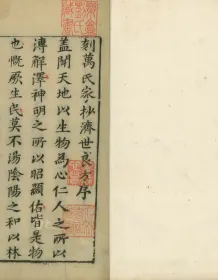 刻萬氏家抄濟世良方序
蓋聞天地以生物為心仁人之所以
溥解澤神明之所以昭顯佑皆是物
也慨厥生民莫不湯陰陽之和以林